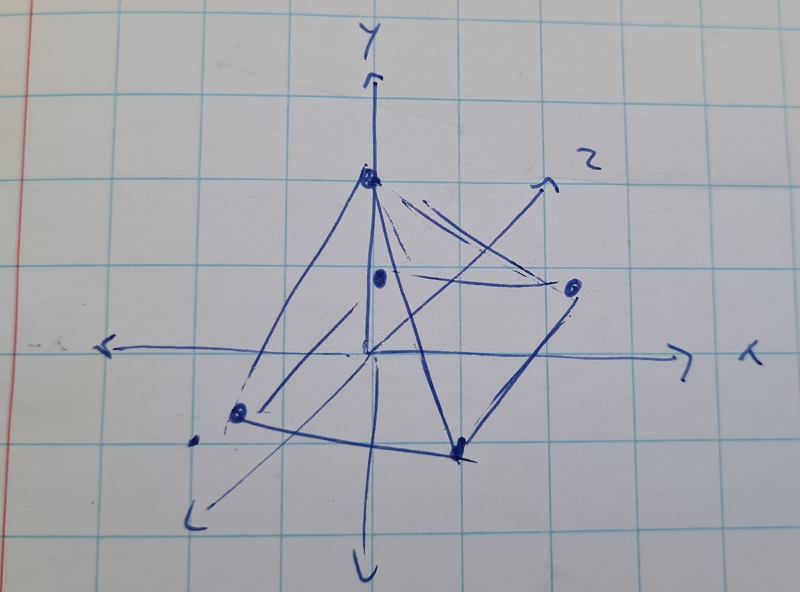 Y
Z
X